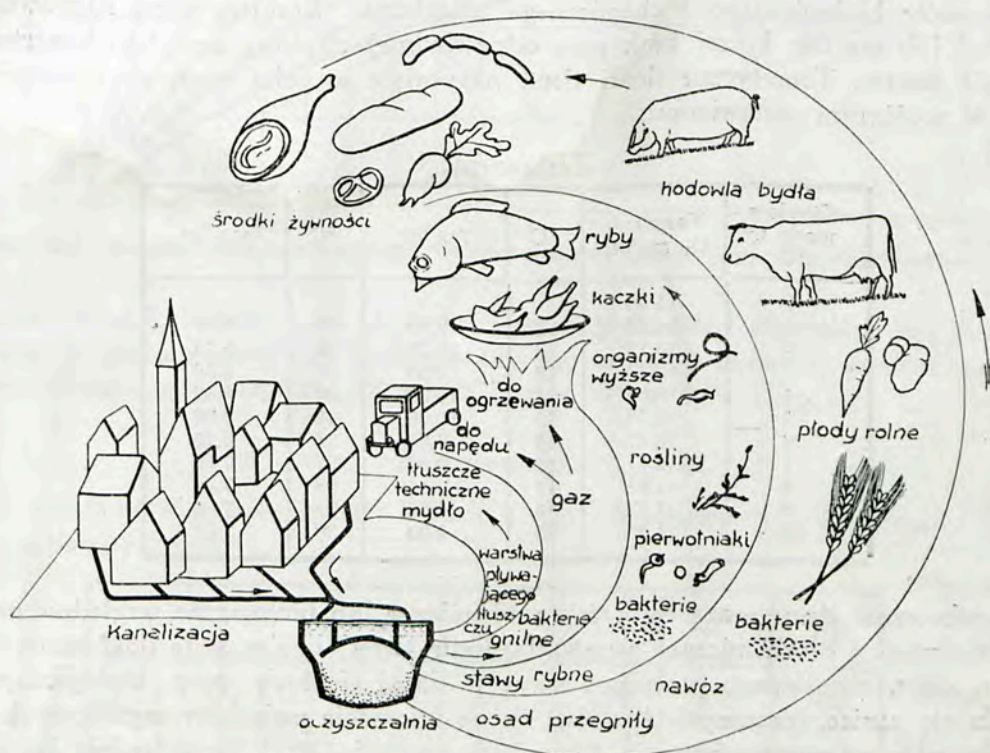 środki żywności
hodowla bydła
ryby
kaczki
organizmy
wyższe
do
ogrzewania
do
napędu
płody rolne
tłuszcze
techniczne
mydło
gaz
rośliny
pierwotniaki
warstwa
pływa-
jącego
tłusz-
czu
bakterie
gnilne
bakterie
bakterie
Kanalizacja
stawy rybne
nawóz
oczyszczalnia
osad przegniły